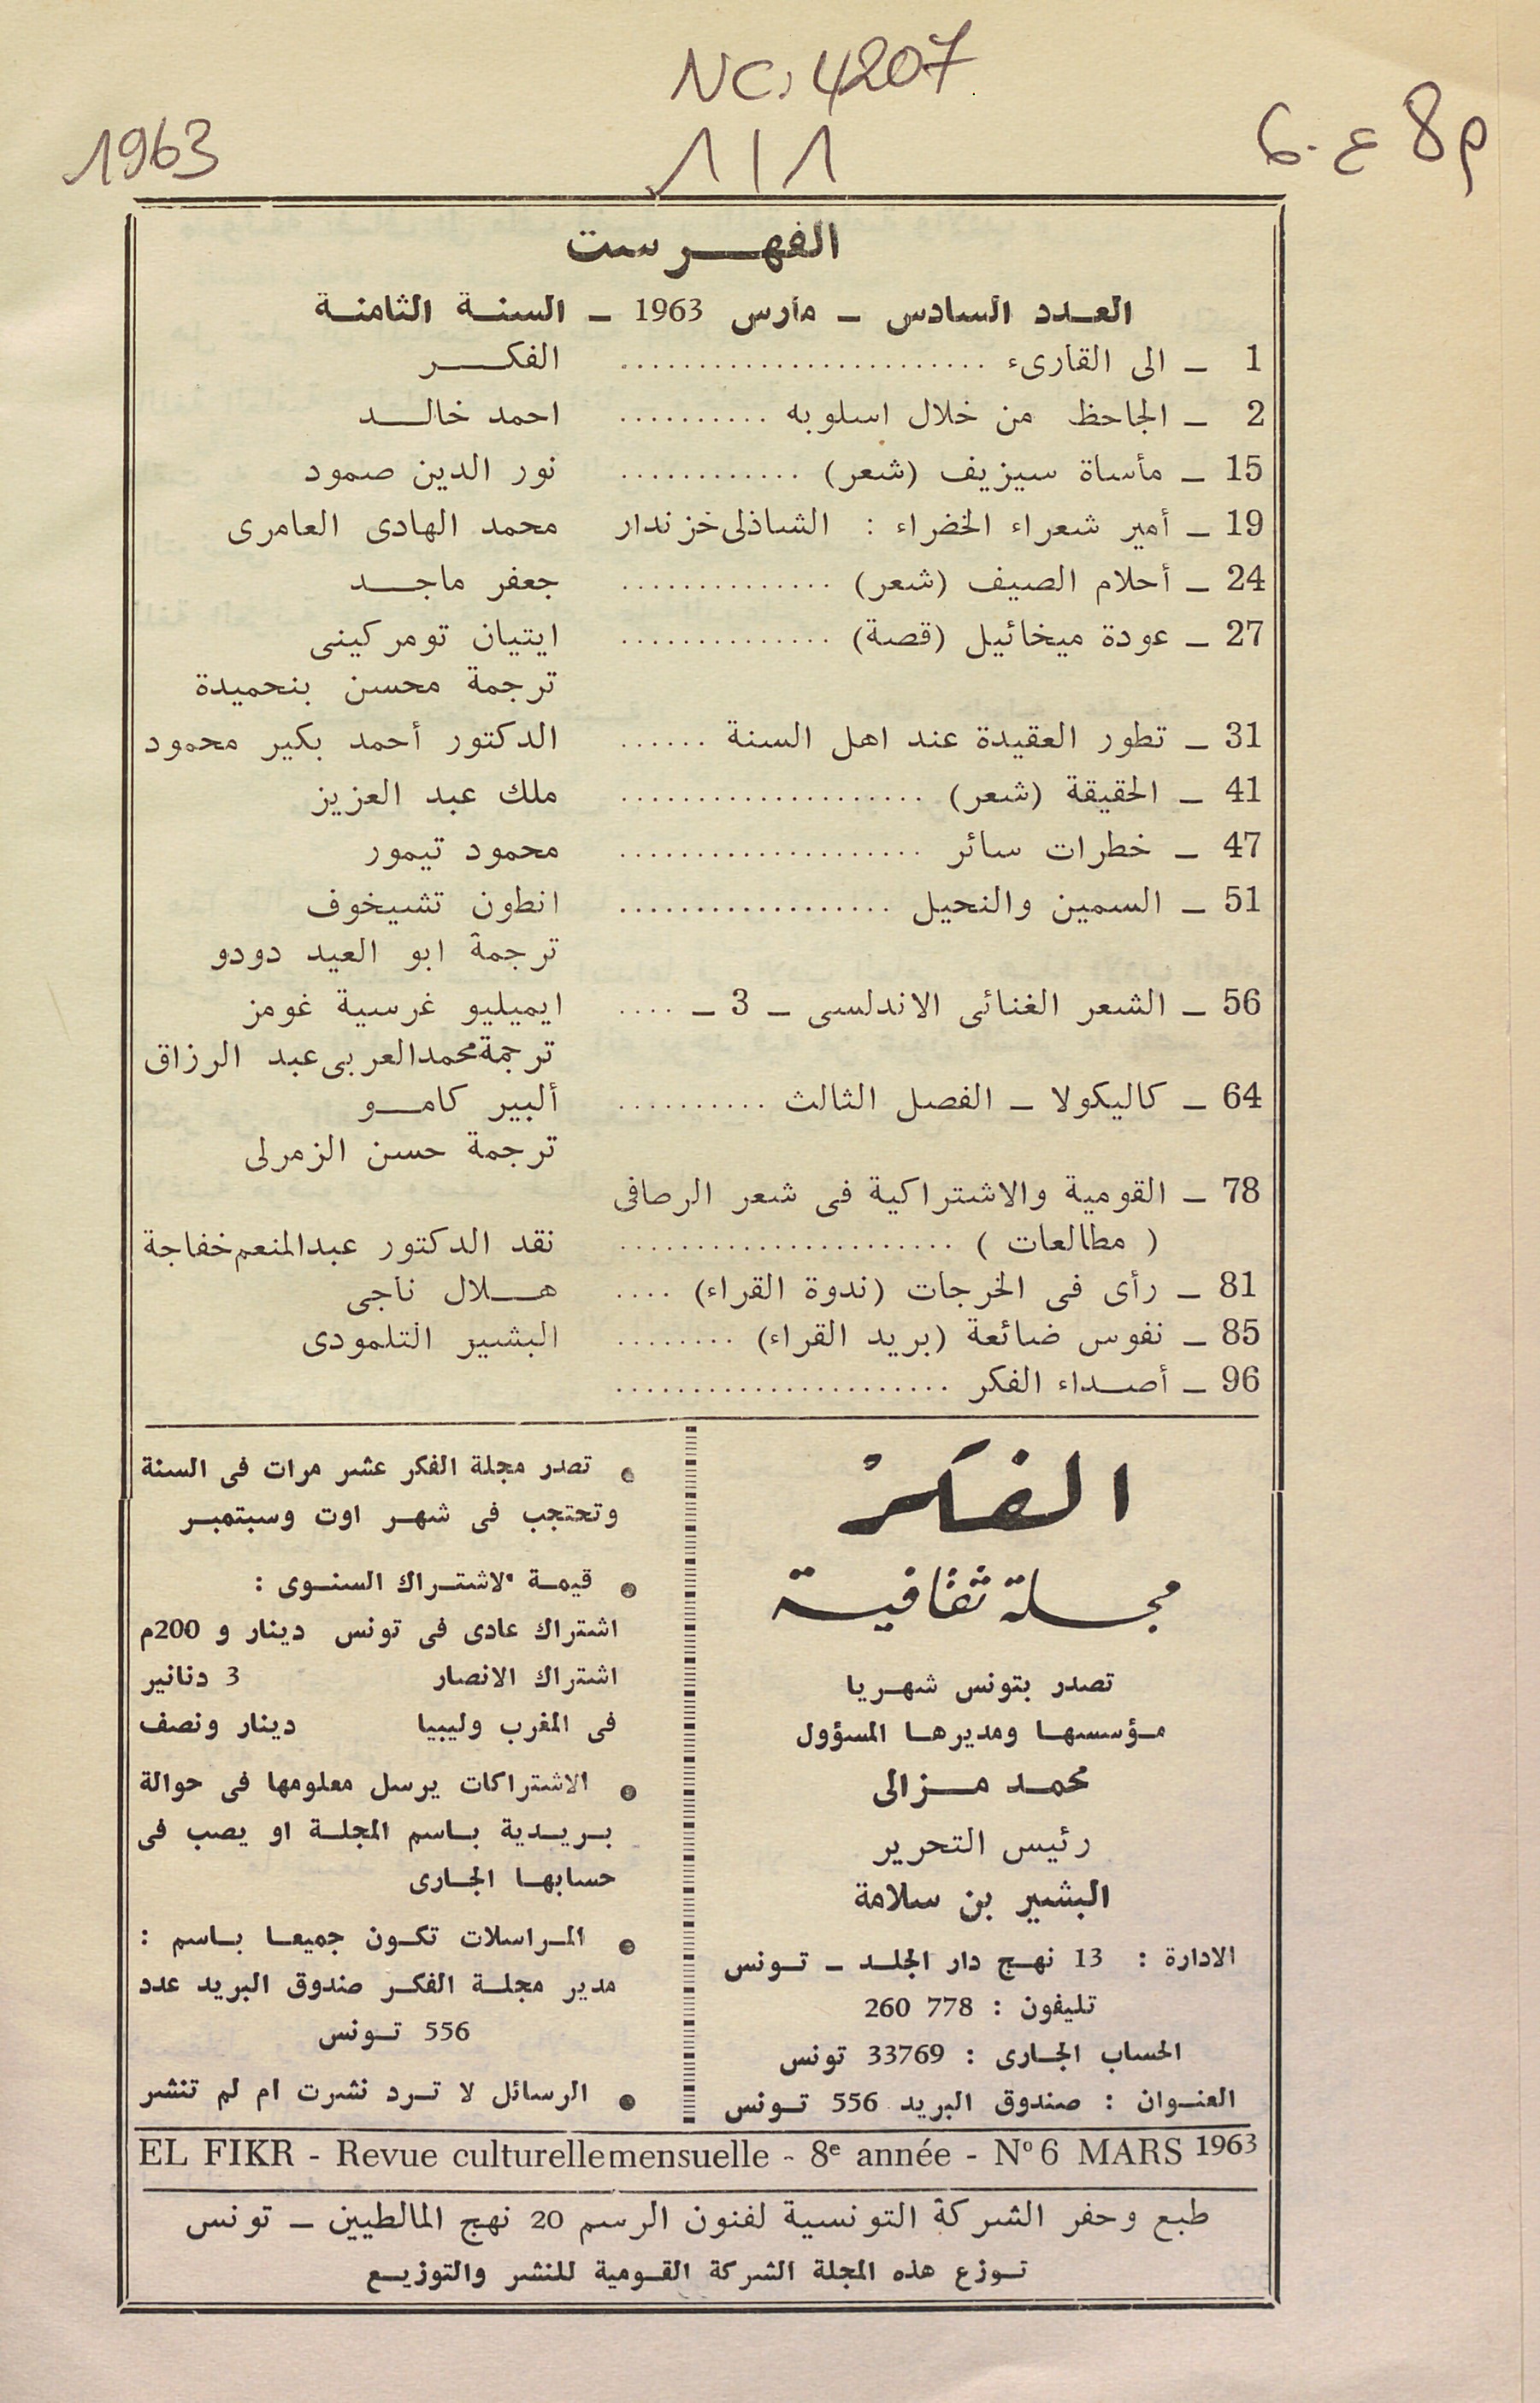 NC. 4207
1963
1/1
8م ع. 6
الفهرست
العدد السادس ـ مارس 1963 ـ السنة الثامنة
1 ـ الى القارىء ........................ الفكر
2 ـ الجاحظ من خلال اسلوبه .......... احمد خالد
15 ـ مأساة سيزيف (شعر) ............ نور الدين صمود
19 ـ أمير شعراء الخضراء : الشاذلى خزندار محمد الهادى العامرى
24 ـ أحلام الصيف (شعر) .............. جعفر ماجد
27 ـ عودة ميخائيل (قصة) .............. ايتيان تومركينى
ترجمة محسن بنحميدة
31 ـ تطور العقيدة عند اهل السنة ...... الدكتور أحمد بكير محمود
41 ـ الحقيقة (شعر) .................... ملك عبد العزيز
47 ـ خطرات سائر .................... محمود تيمور
51 ـ السمين والنحيل .................. انطون تشيخوف
ترجمة ابو العيد دودو
56 ـ الشعر الغنائى الاندلسى ـ 3 ـ .... ايميليو غرسية غومز
ترجمة محمد العربى عبد الرزاق
64 ـ كاليكولا ـ الفصل الثالث .......... ألبير كامو
ترجمة حسن الزمرلى
78 ـ القومية والاشتراكية فى شعر الرصافى
( مطالعات ) ...................... نقد الدكتور عبد المنعم خفاجة
81 ـ رأى فى الخرجات (ندوة القراء) .... هلال ناجى
85 ـ نفوس ضائعة (بريد القراء) ........ البشير التلمودى
96 ـ أصداء الفكر ......................
الفكر
مجلة ثقافية
تصدر بتونس شهريا
مؤسسها ومديرها المسؤول
محمد مزالى
رئيس التحرير
البشير بن سلامة
الادارة : 13 نهج دار الجلد ـ تونس
تليفون : 778 260
الحساب الجارى : 33769 تونس
العنوان : صندوق البريد 556 تونس
● تصدر مجلة الفكر عشر مرات فى السنة
وتحتجب فى شهر اوت وسبتمبر
● قيمة الاشتراك السنوى :
اشتراك عادى فى تونس دينار و 200م
اشتراك الانصار 3 دنانير
فى المغرب وليبيا دينار ونصف
● الاشتراكات يرسل معلومها فى حوالة
بريدية باسم المجلة او يصب فى
حسابها الجارى
● المراسلات تكون جميعا باسم :
مدير مجلة الفكر صندوق البريد عدد
556 تونس
● الرسائل لا ترد نشرت ام لم تنشر
EL FIKR - Revue culturelle mensuelle - 8e année - N° 6 MARS 1963
طبع وحفر الشركة التونسية لفنون الرسم 20 نهج المالطيين ـ تونس
توزع هذه المجلة الشركة القومية للنشر والتوزيع